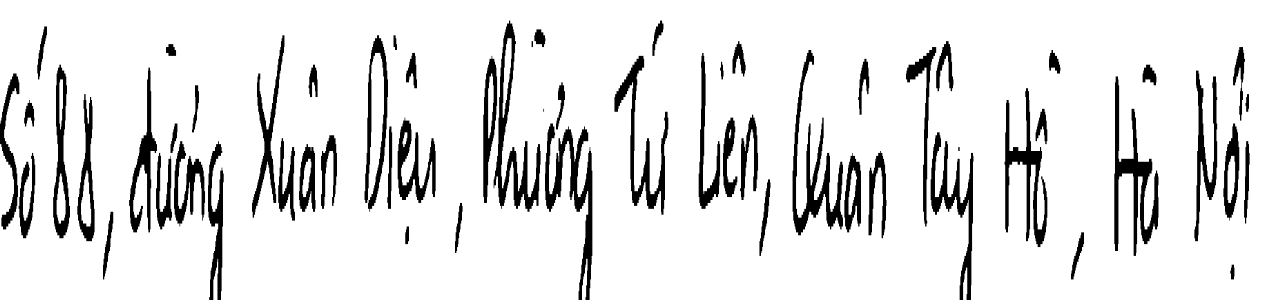 Số 88, đường Xuân Diệu, Phường Tứ Liên, Quận Tây Hồ, Hà Nội